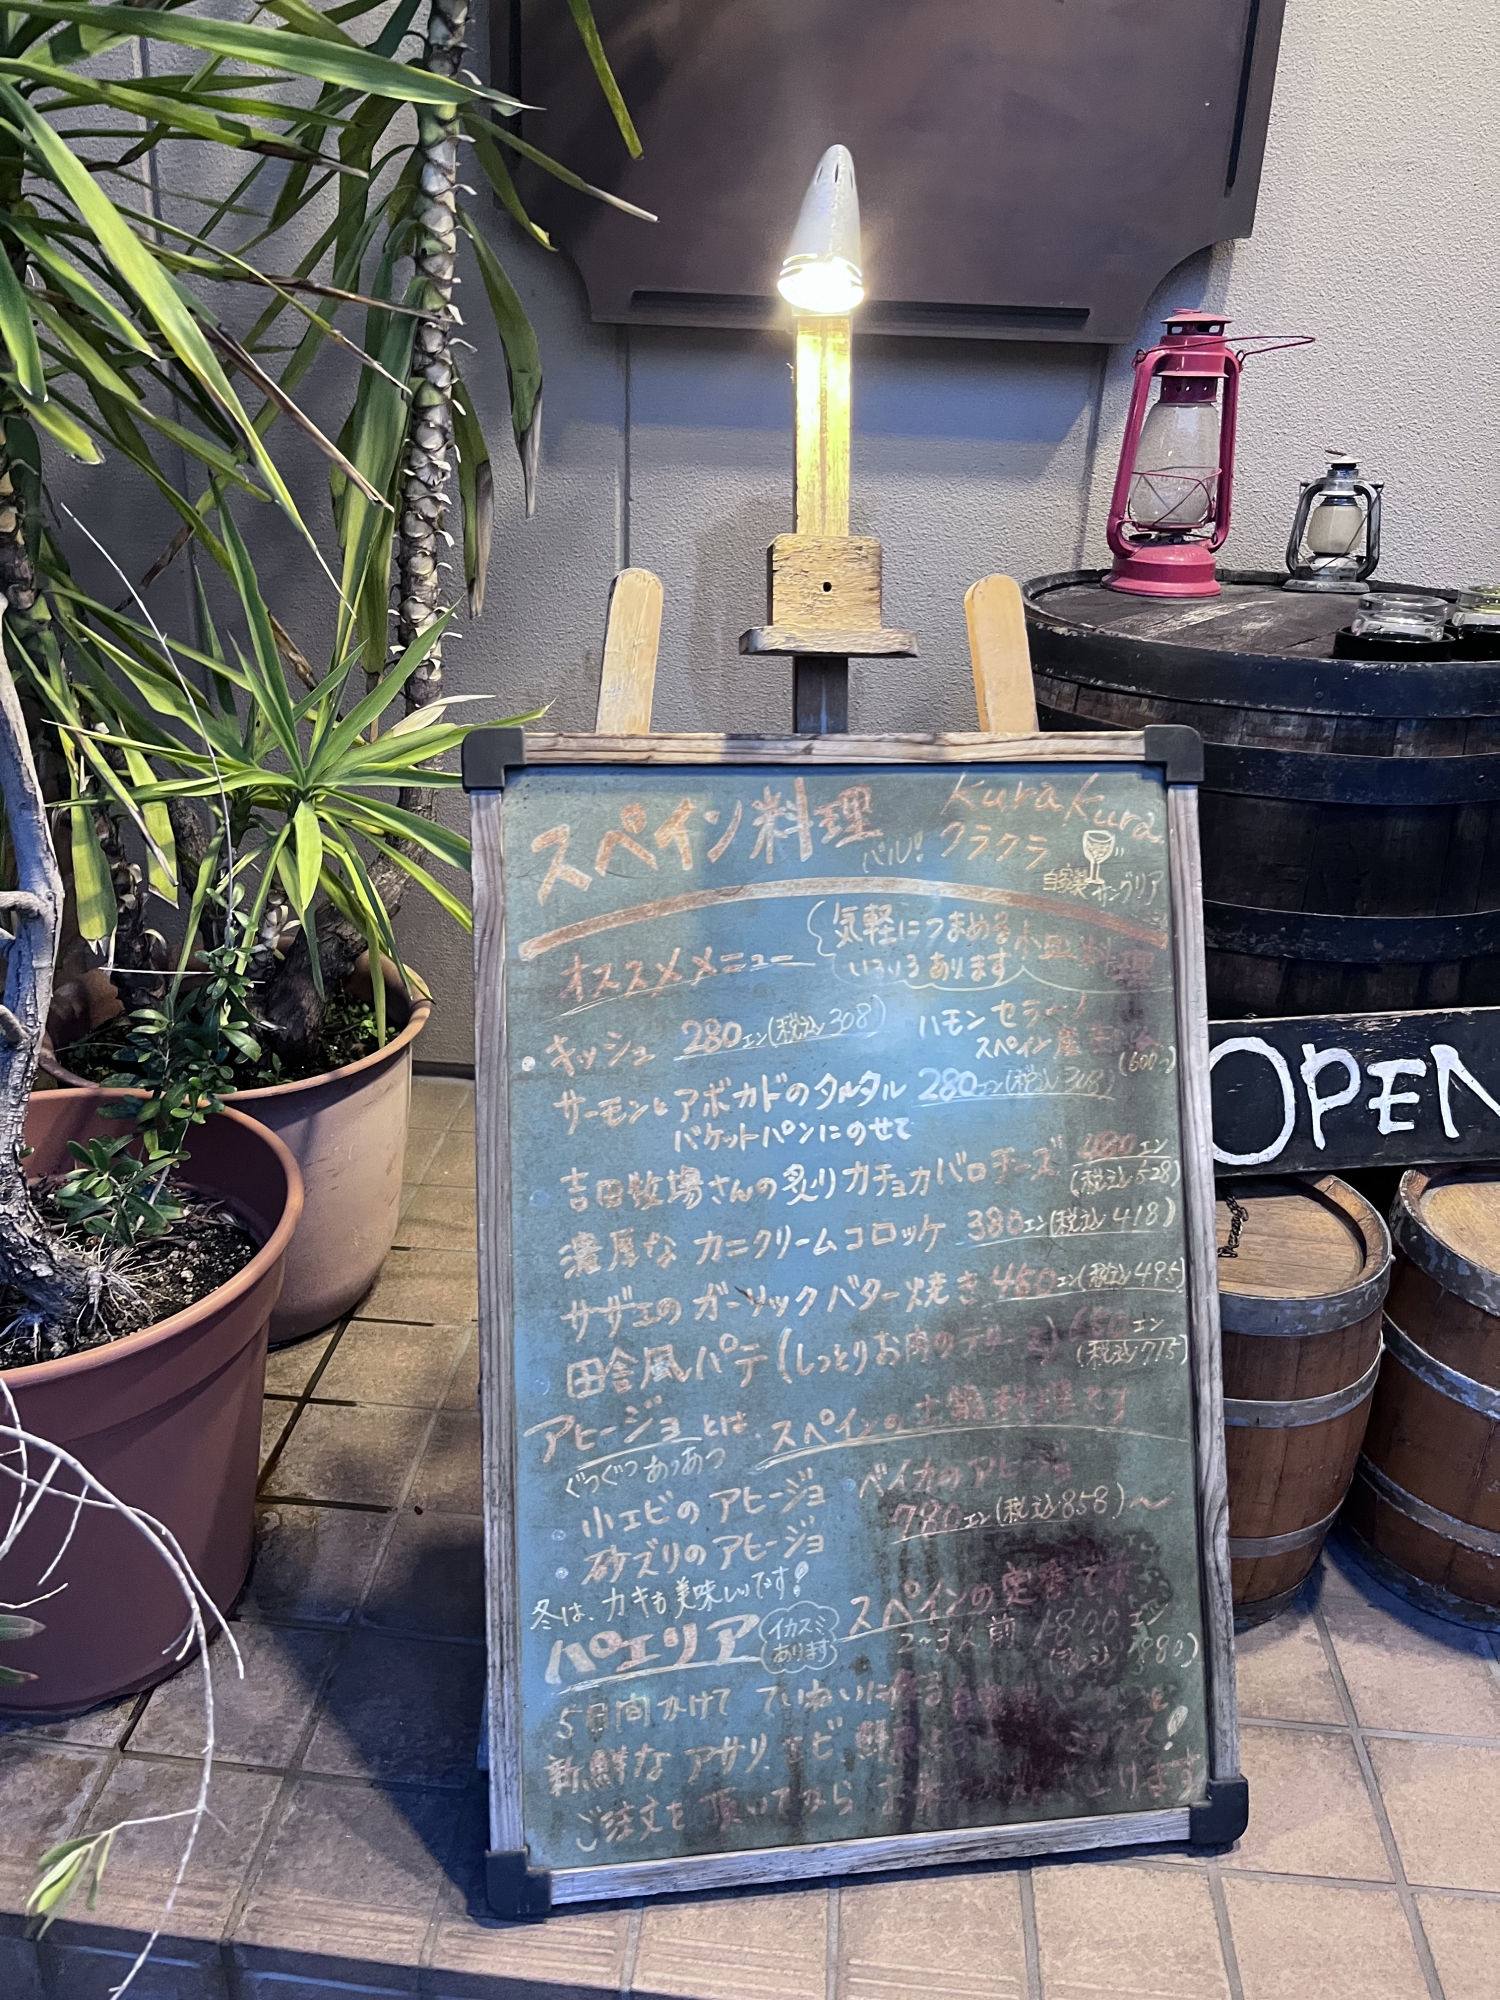 スペイン料理 バル! KuraKura
クラクラ
自家製 サングリア
オススメメニュー
気軽につまめる小皿料理
いろいろあります
・キッシュ 280エン(税込308)
ハモンセラーノ
スペイン産
(600〜)
サーモンとアボカドのタルタル 280エン(税込308)
バケットパンにのせて
吉田牧場さんの炙りカチョカバロチーズ 480エン
(税込528)
濃厚なカニクリームコロッケ 380エン(税込418)
サザエのガーリックバター焼き 450エン(税込495)
田舎風パテ(しっとりお肉のテリーヌ) 650エン
(税込715)
アヒージョとは、スペインの土鍋料理です
ぐつぐつあつあつ
・小エビのアヒージョ
・ベイカのアヒージョ
・砂ズリのアヒージョ
780エン(税込858)〜
冬は、カキも美味しいです!
パエリア
イカスミ
あります
スペインの定番です
2〜3人前 1800エン
(税込1980)
5日間かけて ていねいに
新鮮なアサリ、エビ
ご注文を頂いてから お
ります
OPEN